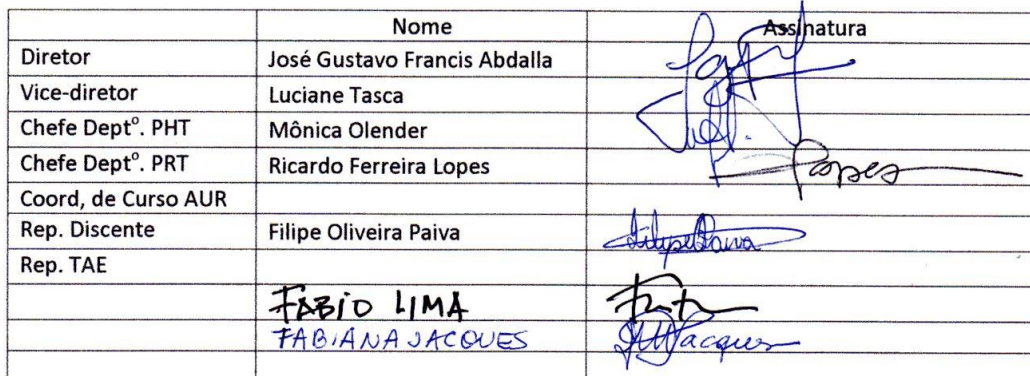 Nome Assinatura
Diretor José Gustavo Francis Abdalla
Vice-diretor Luciane Tasca
Chefe Deptº. PHT Mônica Olender
Chefe Deptº. PRT Ricardo Ferreira Lopes
Lopes
Coord, de Curso AUR
Rep. Discente Filipe Oliveira Paiva FilipePaiva
Rep. TAE
FABIO LIMA
FABIANA JACQUES Jacques